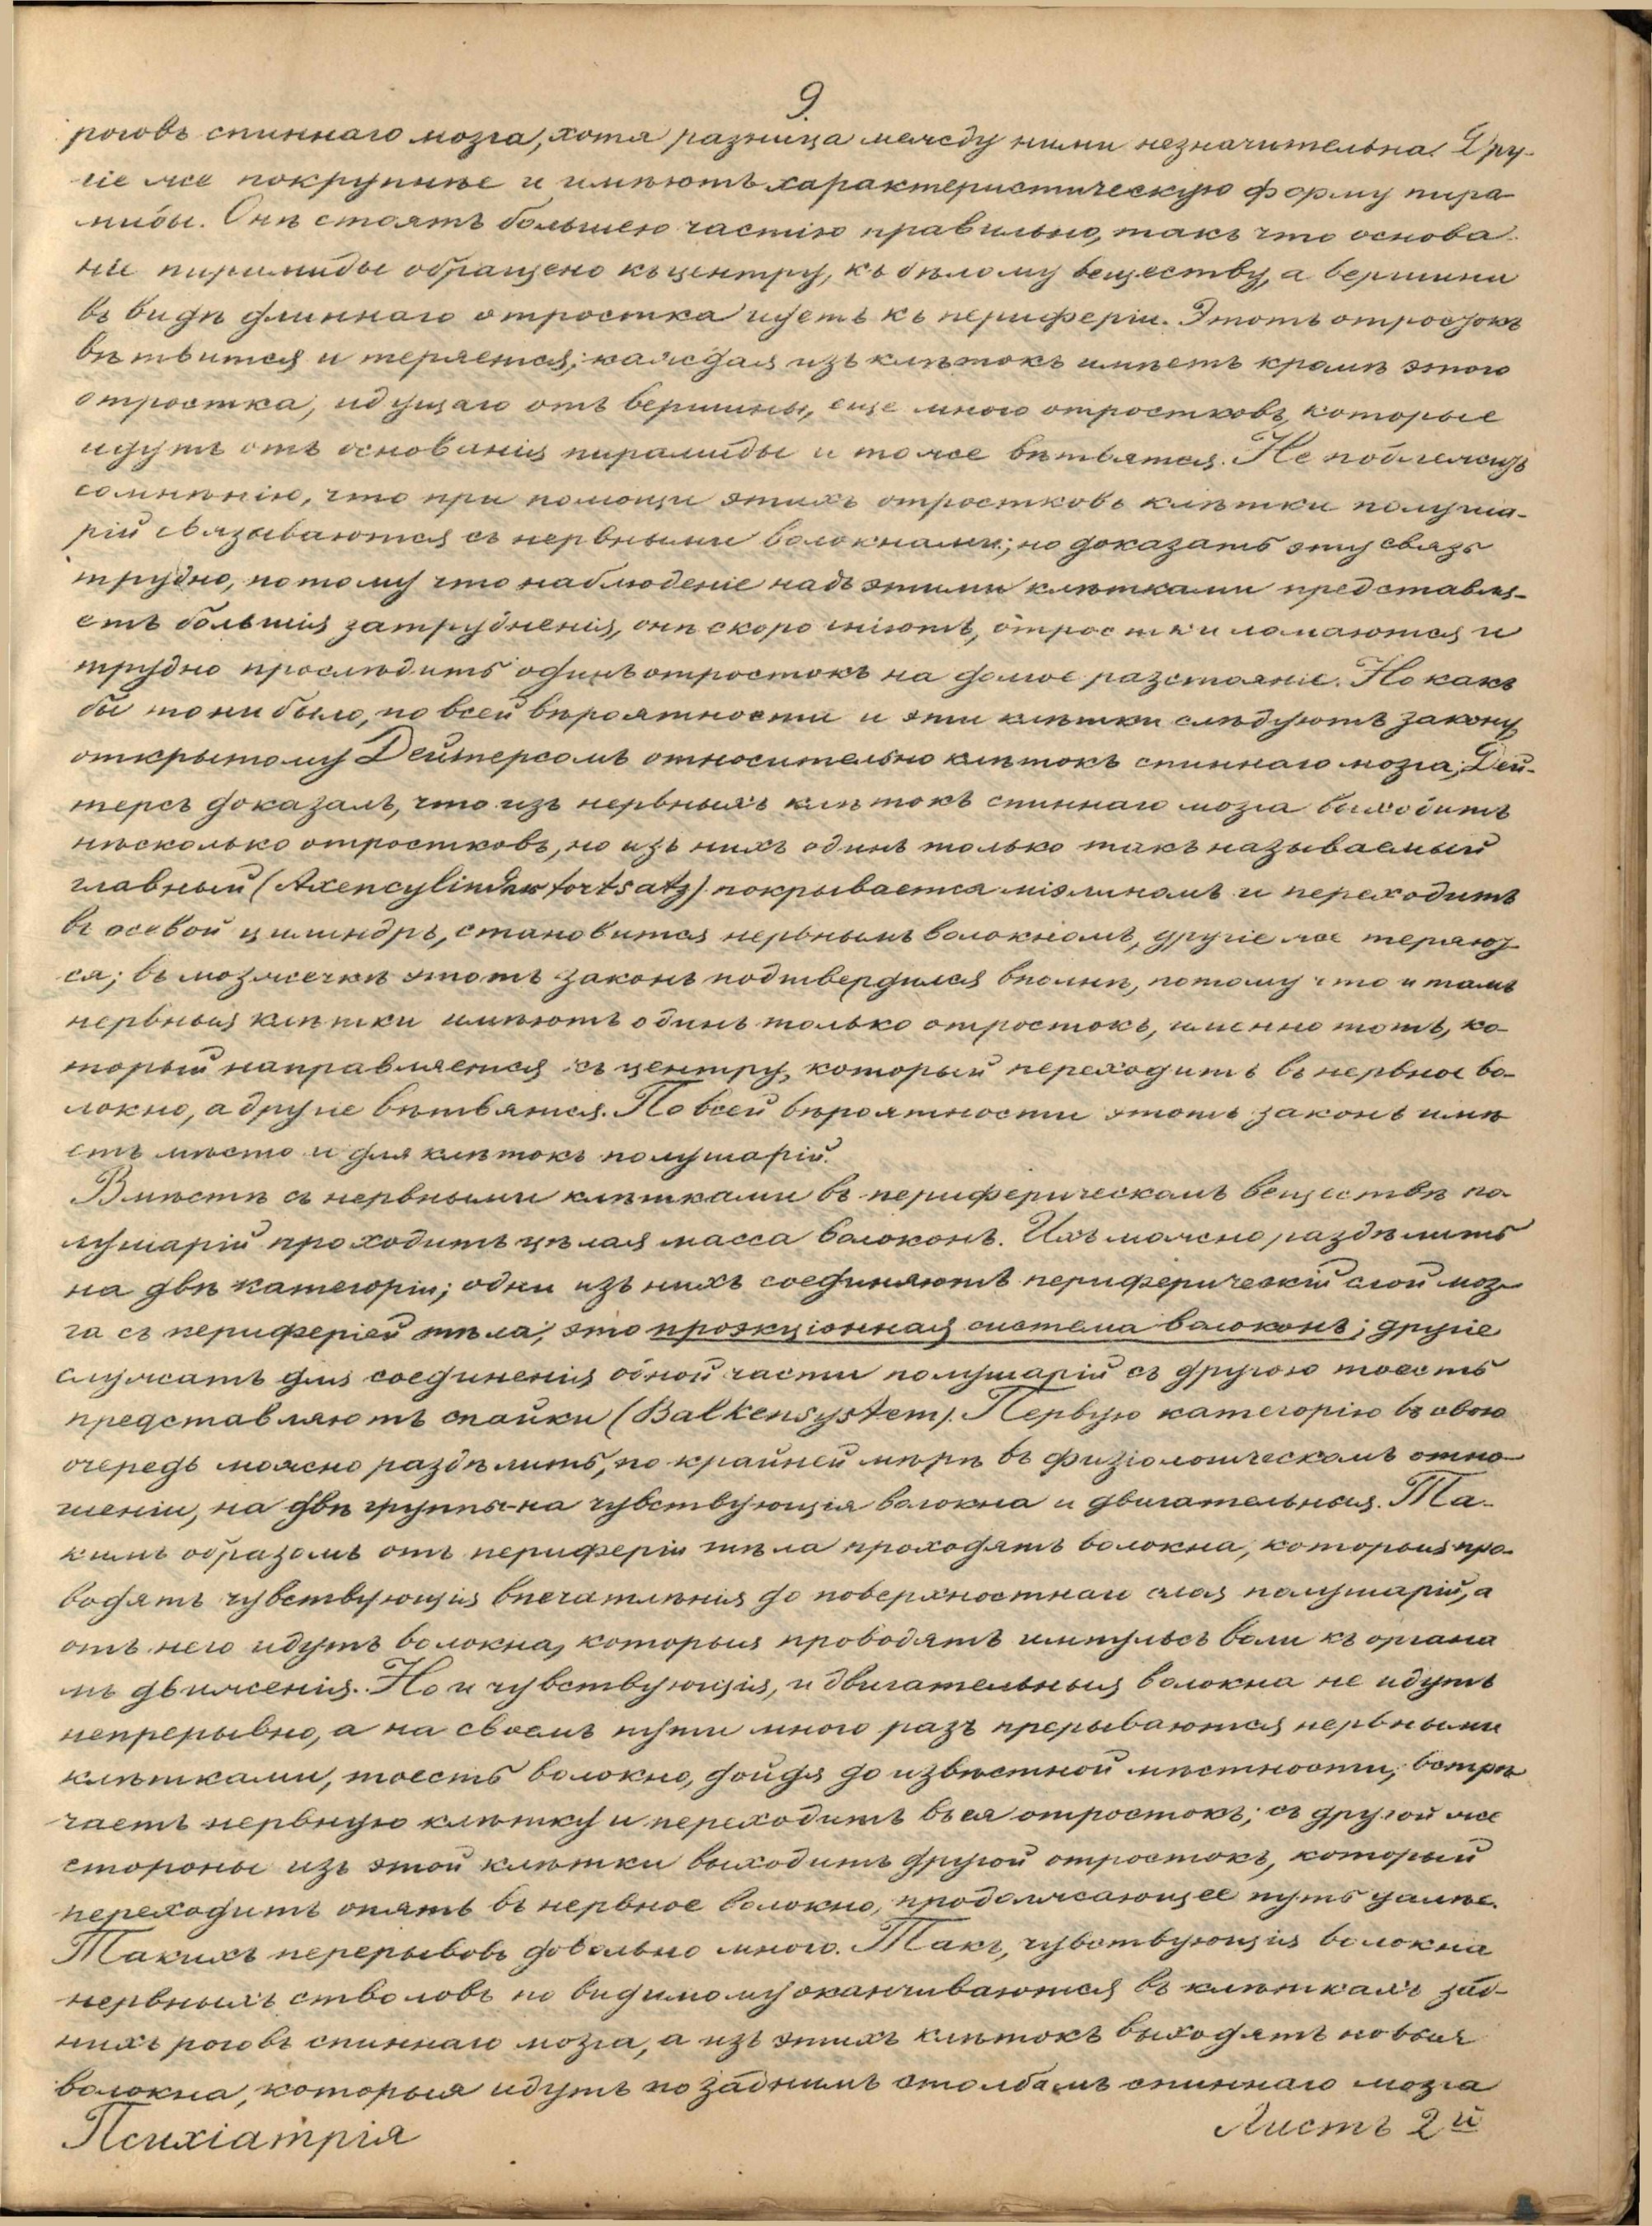 9.
роговъ спиннаго мозга, хотя разница между ними незначительна. Дру-
гіе же покрупнѣе и имѣютъ характеристическую форму пира-
миды. Онѣ стоятъ большею частію правильно, такъ что основа-
ніе пирамиды обращено къ центру, къ бѣлому веществу, а вершина
въ видѣ длиннаго отростка идетъ къ периферіи. Этотъ отростокъ
вѣтвится и теряется; каждая изъ клѣтокъ имѣетъ кромѣ этого
отростка, идущаго отъ вершины, еще много отростковъ, которые
идутъ отъ основанія пирамиды и тоже вѣтвятся. Не подлежитъ
сомнѣнію, что при помощи этихъ отростковъ клѣтки полуша-
рій связываются съ нервными волокнами; но доказать эту связь
трудно, потому что наблюденіе надъ этими клѣтками представля-
етъ большія затрудненія, онѣ скоро гніютъ, отростки ломаются и
трудно прослѣдить одинъ отростокъ на долгое разстояніе. Но какъ
бы то ни было, по всей вѣроятности и эти клѣтки слѣдуютъ закону
открытому Дейтерсомъ относительно клѣтокъ спиннаго мозга; Дей-
терсъ доказалъ, что изъ нервныхъ клѣтокъ спиннаго мозга выходитъ
нѣсколько отростковъ, но изъ нихъ одинъ только такъ называемый
главный (Axencylinderfortsatz) покрывается міэлиномъ и переходитъ
въ осевой цилиндръ, становится нервнымъ волокномъ, другіе же теряют-
ся; въ мозжечкѣ этотъ законъ подтвердился вполнѣ, потому что и тамъ
нервныя клѣтки имѣютъ одинъ только отростокъ, именно тотъ, ко-
торый направляется къ центру, который переходитъ въ нервное во-
локно, а другіе вѣтвятся. По всей вѣроятности этотъ законъ имѣ
етъ мѣсто и для клѣтокъ полушарій.
Вмѣстѣ съ нервными клѣтками въ периферическомъ веществѣ по-
лушарій проходитъ цѣлая масса волоконъ. Ихъ можно раздѣлить
на двѣ категоріи; одни изъ нихъ соединяютъ периферическій слой моз-
га съ периферіей тѣла, это проэкціонная система волоконъ; другіе
служатъ для соединенія одной части полушарій съ другою тоесть
представляютъ спайки (Balkensystem). Первую категорію въ свою
очередь можно раздѣлить, по крайней мѣрѣ въ физіологическомъ отно-
шеніи, на двѣ группы-на чувствующія волокна и двигательныя. Та-
кимъ образомъ отъ периферіи тѣла проходятъ волокна, которыя про-
водятъ чувствующія впечатлѣнія до поверхностнаго слоя полушарій, а
отъ него идутъ волокна, которыя проводятъ импульсъ воли къ органа
мъ движенія. Но и чувствующія, и двигательныя волокна не идутъ
непрерывно, а на своемъ пути много разъ прерываются нервными
клѣтками, тоесть волокно, дойдя до извѣстной мѣстности, встрѣ
чаетъ нервную клѣтку и переходитъ въ ея отростокъ; съ другой же
стороны изъ этой клѣтки выходитъ другой отростокъ, который
переходитъ опять въ нервное волокно, продолжающее путь далѣе.
Такихъ перерывовъ довольно много. Такъ, чувствующія волокна
нервныхъ стволовъ по видимому оканчиваются въ клѣткахъ зад-
нихъ роговъ спиннаго мозга, а изъ этихъ клѣтокъ выходятъ новыя
волокна, которыя идутъ по заднимъ столбамъ спиннаго мозга
Психіатрія
Листъ 2й